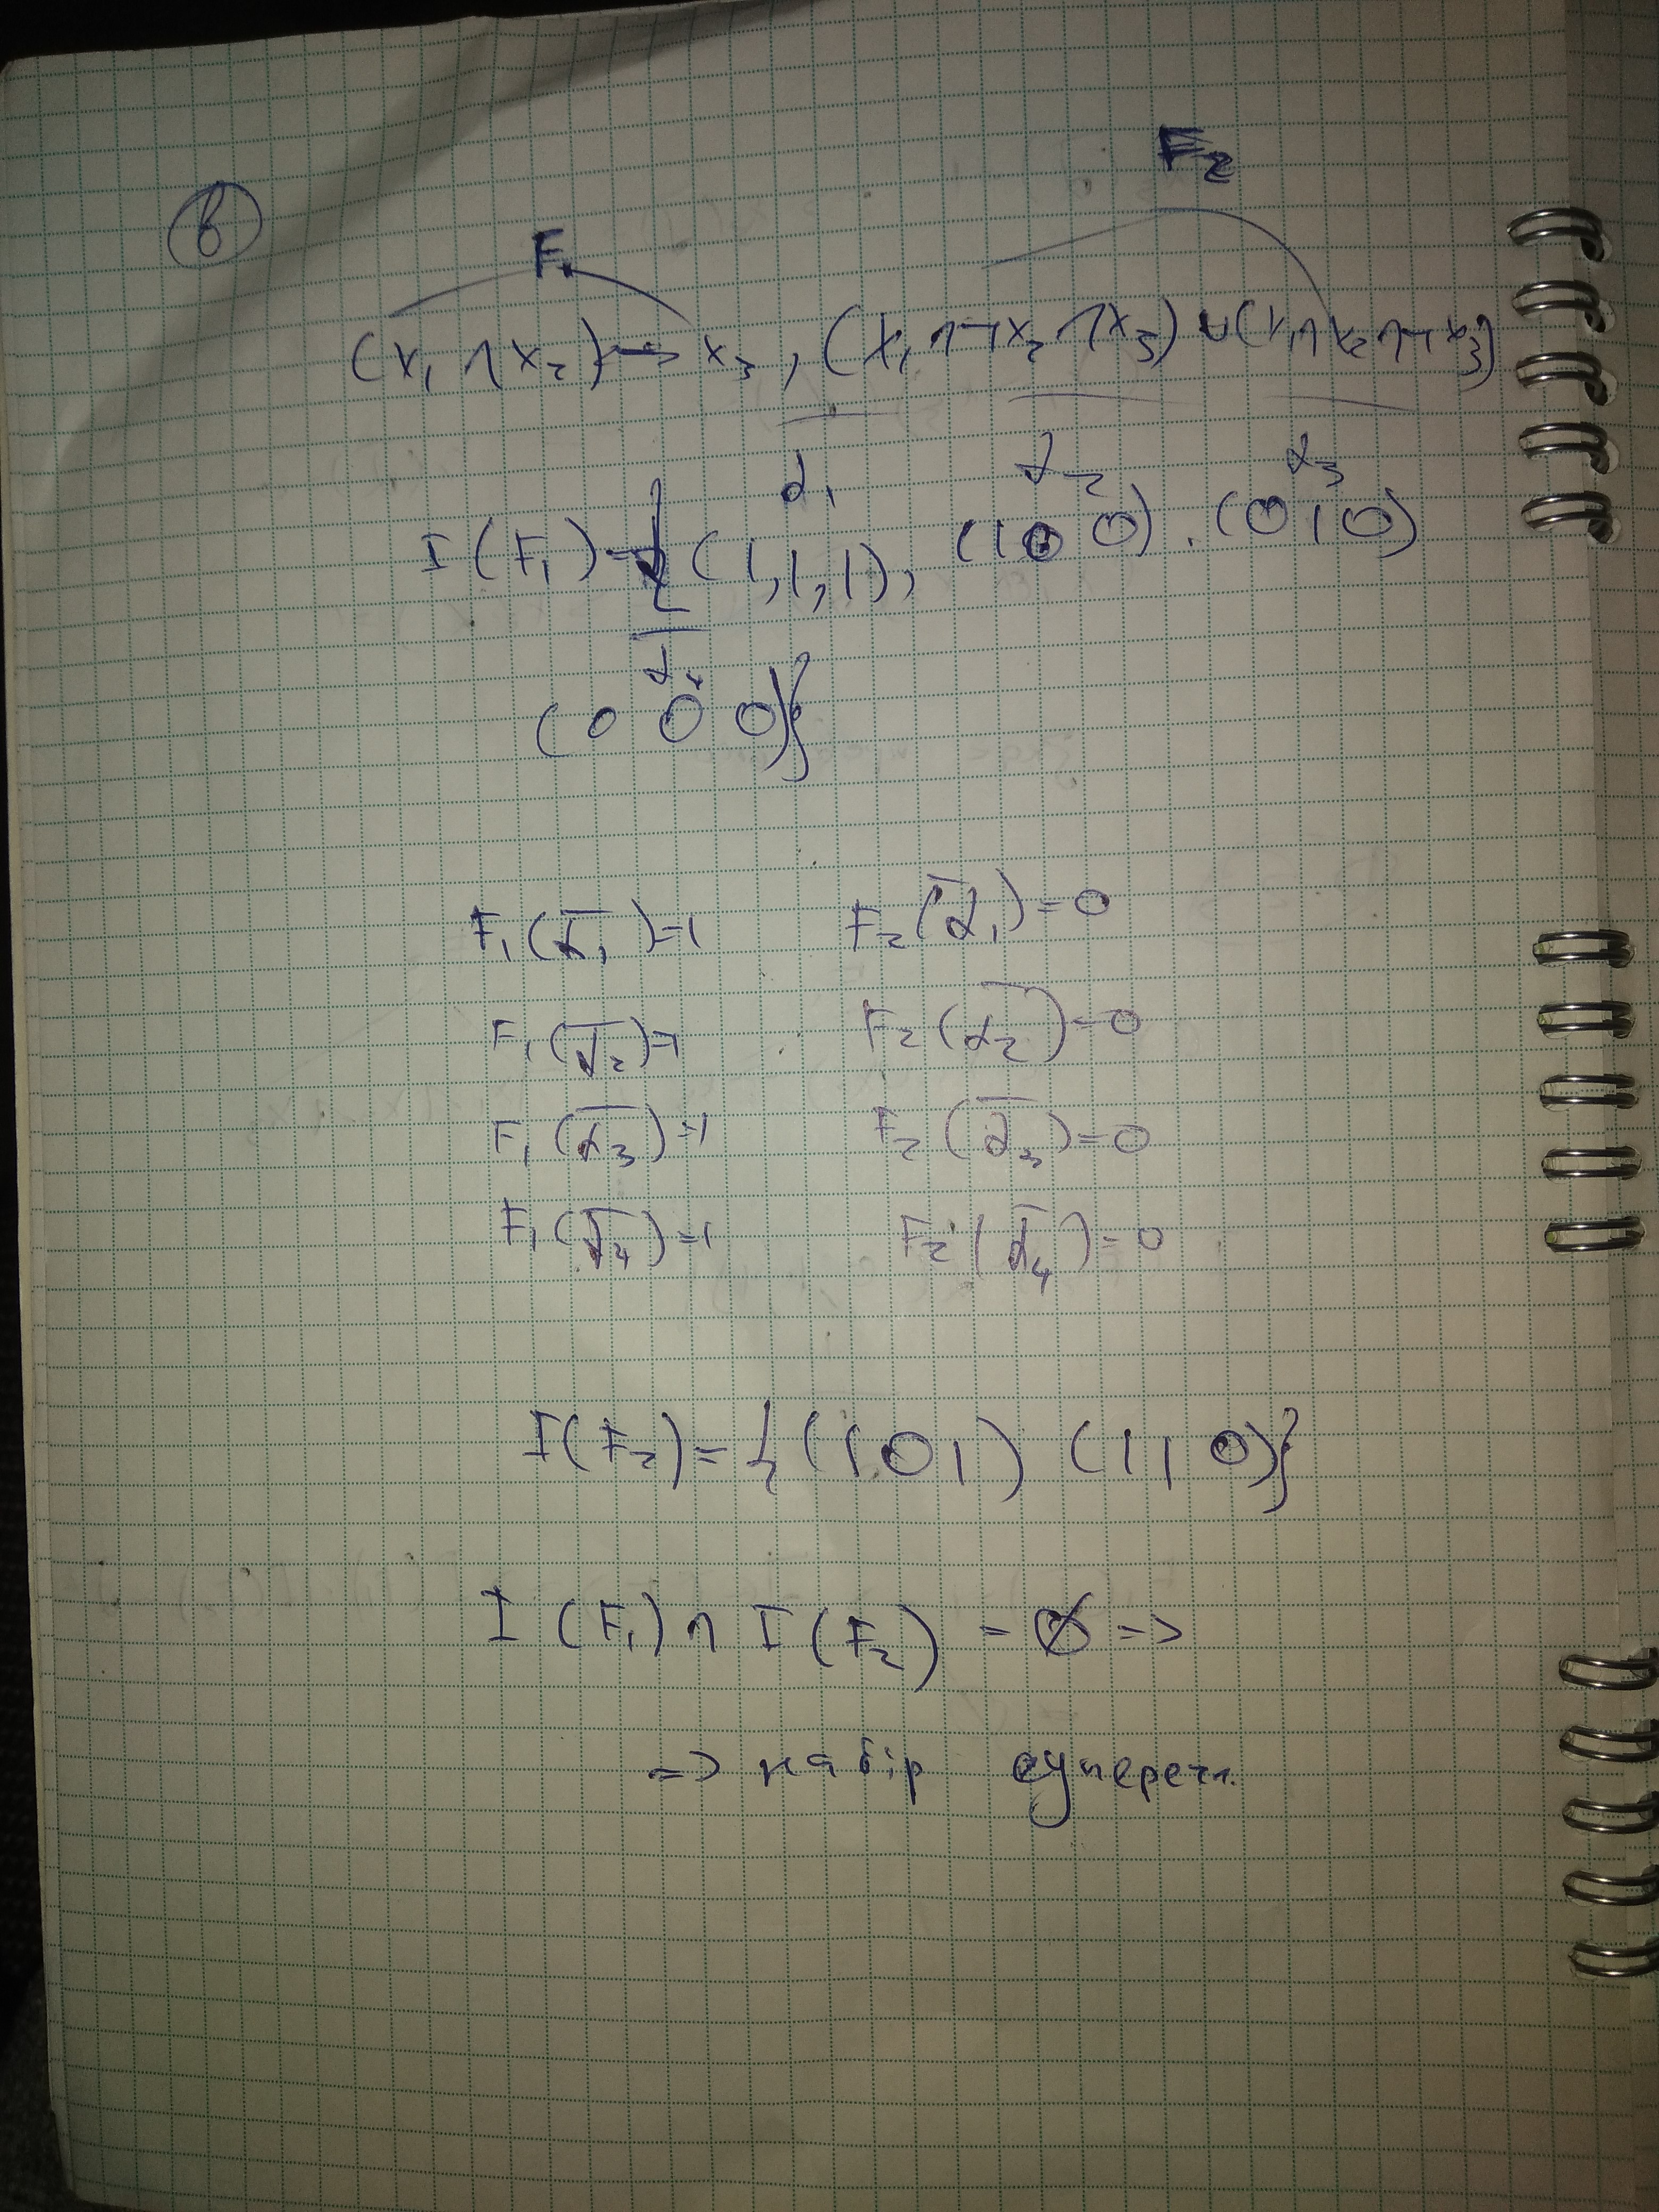 в
F₁ F₂
(x₁ ∧ x₂) ↔ x₃, (x₁ ∧ ¬x₂ ∧ x₃) ∨ (x₁ ∧ x₂ ∧ ¬x₃)
α₁ α₂ α₃
I(F₁) = { (1,1,1), (1 0 0), (0 1 0)
α₄
(0 0 0)}
F₁(α̅₁) = 1 F₂(α̅₁) = 0
F₁(α̅₂) = 1 F₂(α̅₂) = 0
F₁(α̅₃) = 1 F₂(α̅₃) = 0
F₁(α̅₄) = 1 F₂(α̅₄) = 0
I(F₂) = {(1 0 1) (1 1 0)}
I(F₁) ∩ I(F₂) = ∅ =>
=> набір суперечл.